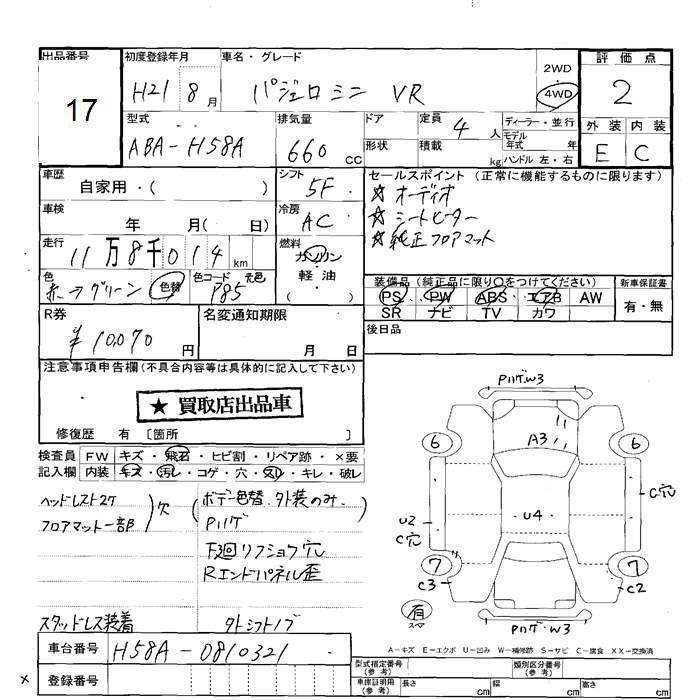 出品番号
17
初度登録年月
H21 8月
車名・グレード
パジェロミニ VR
2WD
4WD
評価点
2
型式
ABA-H58A
排気量
660 cc
ドア
形状
定員
4 人
積載
kg
ディーラー・並行
モデル年式 年
ハンドル 左・右
外装 内装
E C
車歴
自家用・( )
シフト
5F
セールスポイント (正常に機能するものに限ります)
☆オーディオ
☆シートヒーター
☆純正フロアマット
車検
年 月( 日)
冷房
AC
走行
11万8千014 km
燃料
ガソリン
軽油
( )
色
赤→グリーン 色替
色コード 元色
P85
装備品 (純正品に限り〇をつけてください)
PS PW ABS エアB AW
SR ナビ TV カワ
新車保証書
有・無
R券
¥10,070 円
名変通知期限
月 日
後日品
注意事項申告欄(不具合内容等は具体的に記入して下さい)
★ 買取店出品車
修復歴 有 [箇所 ]
検査員記入欄
FW キズ・飛石・ヒビ割・リペア跡・×要
内装 キズ・汚レ・コゲ・穴・スレ・キレ・破レ
ヘッドレスト2ケ
フロアマット一部
欠
(ボデー色替、外装のみ.)
Pハゲ
F3廻リフショウ穴
Rエンドパネル歪
スタッドレス装着
タトシフトノブ
PハゲW3
A3
6
6
C穴
U2
C穴
U4
7
7
C3
C2
有
スペア
Pハゲ・W3
A-キズ E-エクボ U-凹み W-補修跡 S-サビ C-腐食 XX-交換済
車台番号
H58A-0810321
登録番号
×
型式指定番号
(参考)
類別区分番号
(参考)
車庫証明用
(参考)
長さ cm
幅 cm
高さ cm